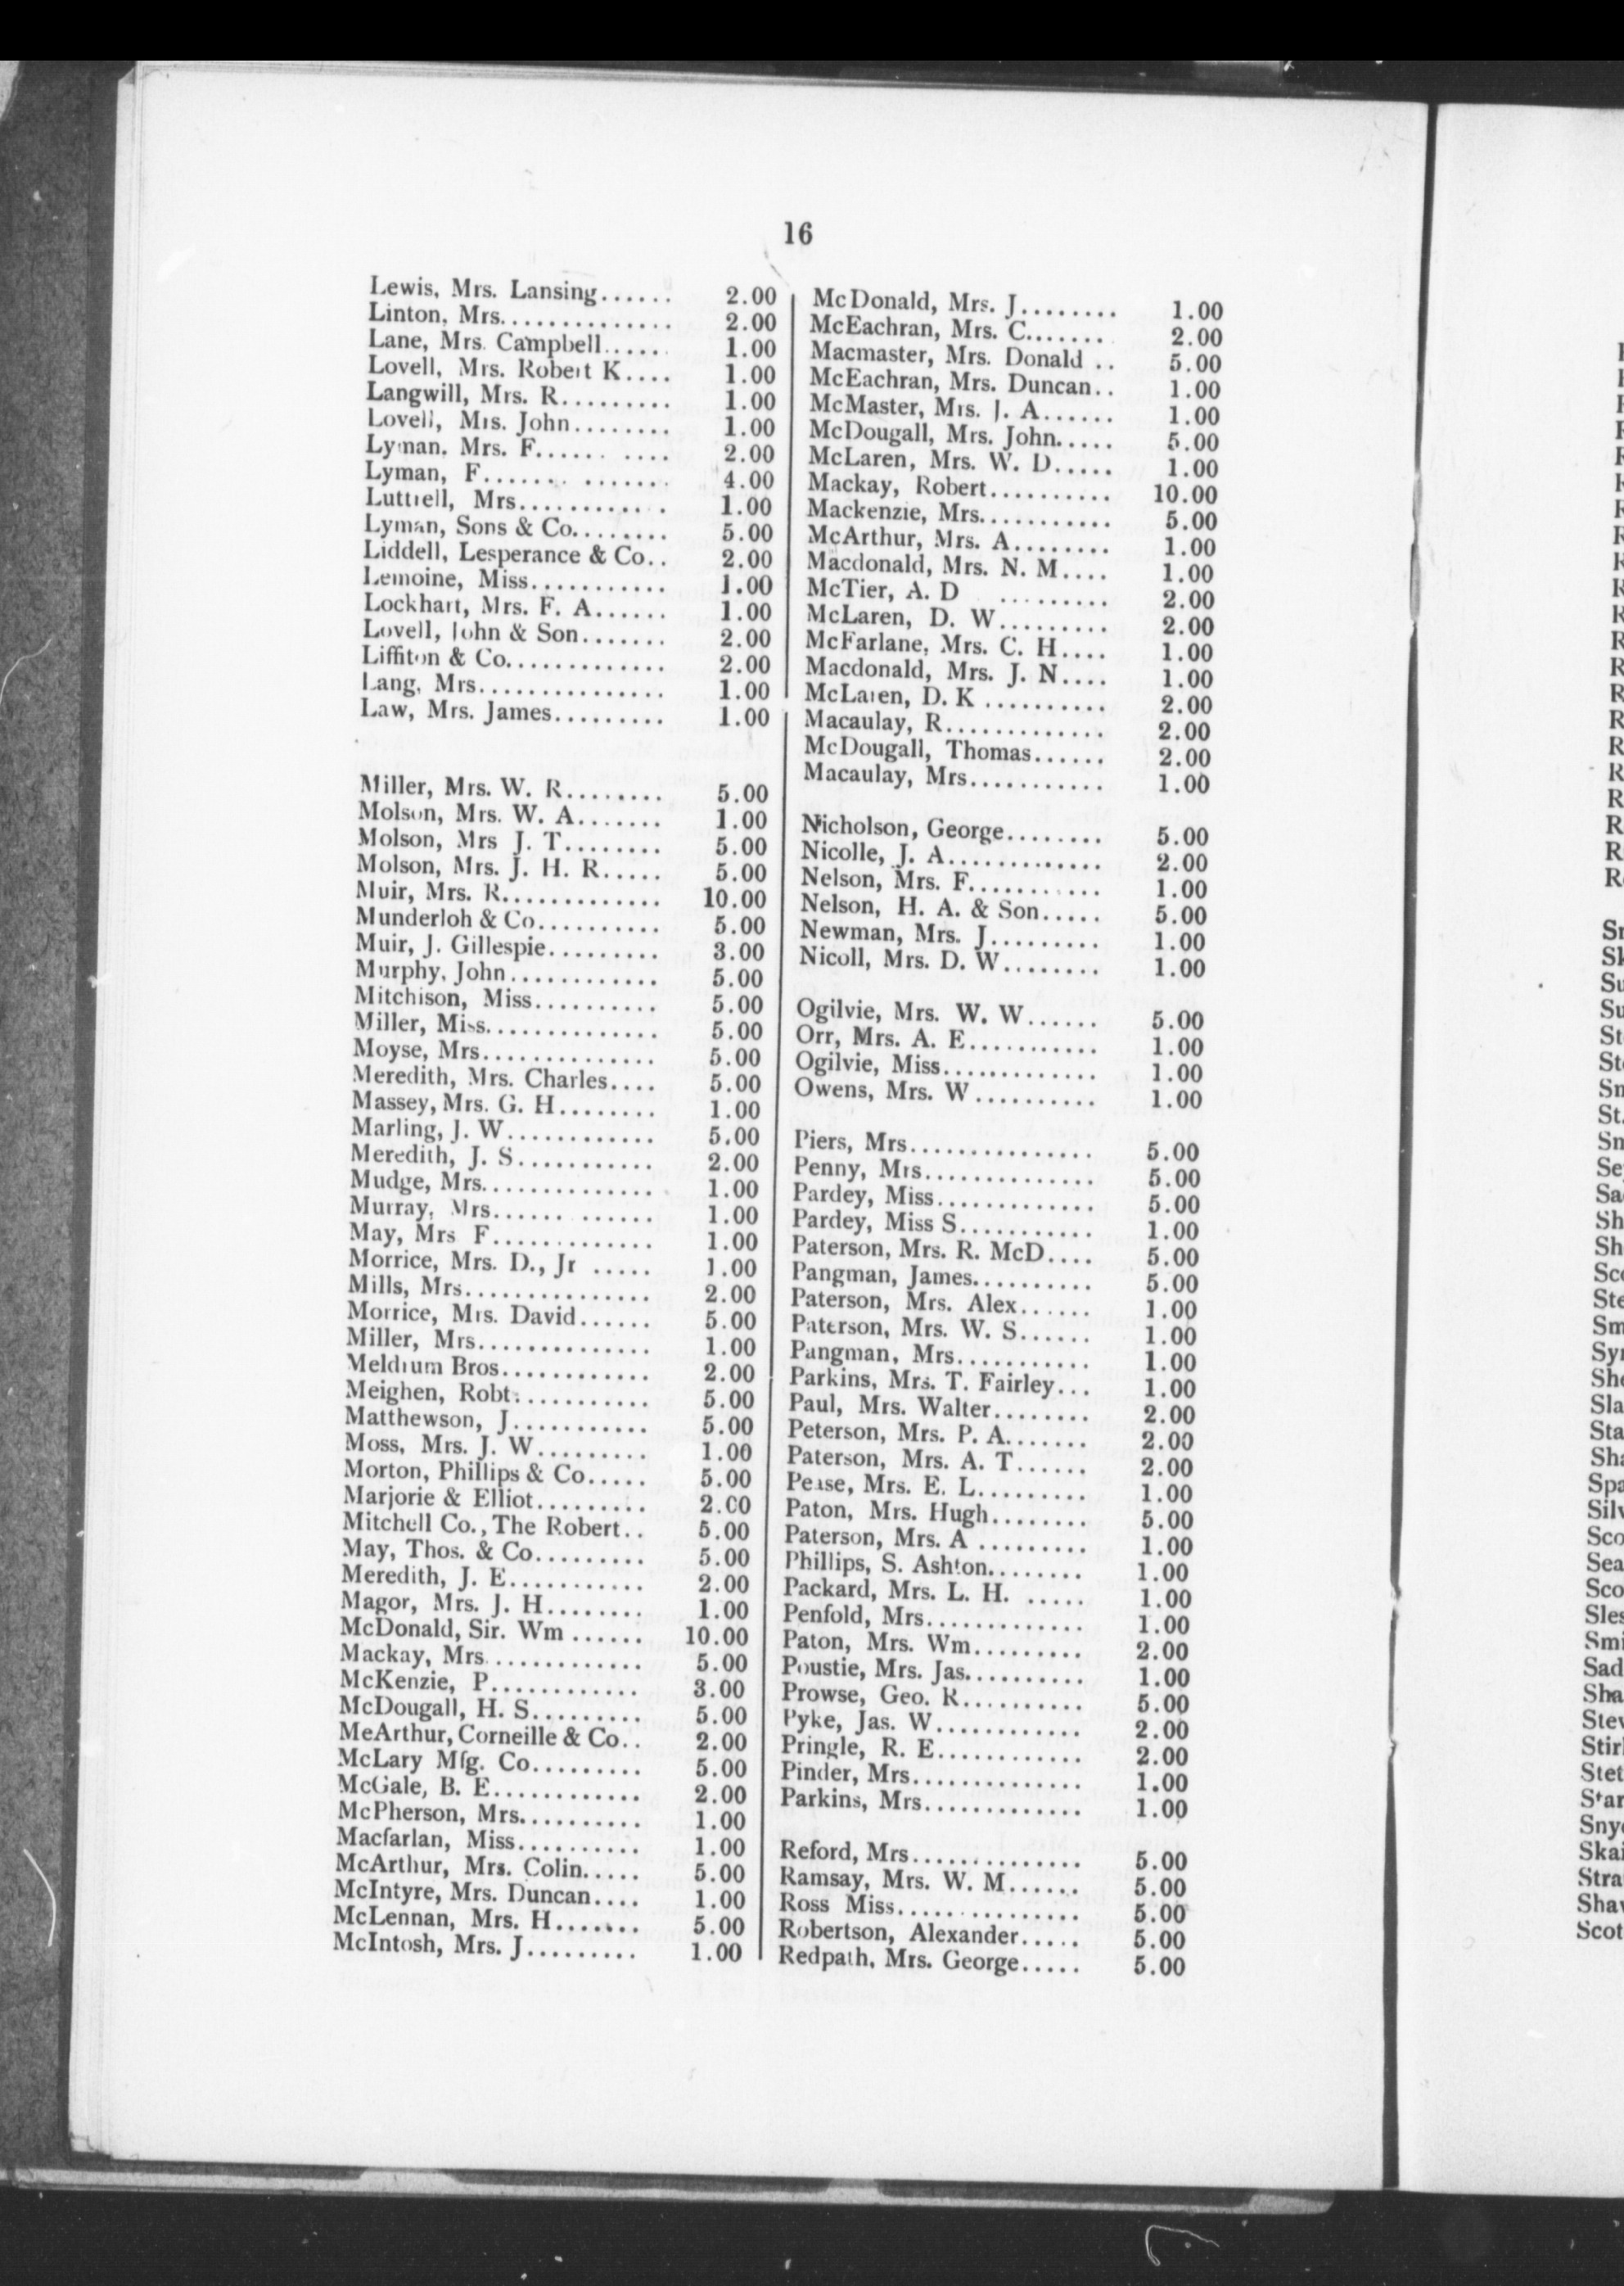 16
Lewis, Mrs. Lansing...... 2.00
Linton, Mrs.............. 2.00
Lane, Mrs. Campbell..... 1.00
Lovell, Mrs. Robert K.... 1.00
Langwill, Mrs. R......... 1.00
Lovell, Mrs. John........ 1.00
Lyman, Mrs. F...... .... 2.00
Lyman, F....... ....... 4.00
Luttrell, Mrs............ 1.00
Lyman, Sons & Co........ 5.00
Liddell, Lesperance & Co.. 2.00
Lemoine, Miss........... 1.00
Lockhart, Mrs. F. A...... 1.00
Lovell, John & Son....... 2.00
Liffiton & Co............. 2.00
Lang, Mrs............... 1.00
Law, Mrs. James......... 1.00
Miller, Mrs. W. R........ 5.00
Molson, Mrs. W. A....... 1.00
Molson, Mrs J. T........ 5.00
Molson, Mrs. J. H. R..... 5.00
Muir, Mrs. R............. 10.00
Munderloh & Co.......... 5.00
Muir, J. Gillespie......... 3.00
Murphy, John............ 5.00
Mitchison, Miss.......... 5.00
Miller, Miss.............. 5.00
Moyse, Mrs.............. 5.00
Meredith, Mrs. Charles.... 5.00
Massey, Mrs. G. H........ 1.00
Marling, J. W............ 5.00
Meredith, J. S........... 2.00
Mudge, Mrs.............. 1.00
Murray, Mrs...... ...... 1.00
May, Mrs F............. 1.00
Morrice, Mrs. D., Jr ..... 1.00
Mills, Mrs............... 2.00
Morrice, Mrs. David...... 5.00
Miller, Mrs.............. 1.00
Meldrum Bros............ 2.00
Meighen, Robt........... 5.00
Matthewson, J........... 5.00
Moss, Mrs. J. W......... 1.00
Morton, Phillips & Co..... 5.00
Marjorie & Elliot......... 2.00
Mitchell Co., The Robert.. 5.00
May, Thos. & Co......... 5.00
Meredith, J. E........... 2.00
Magor, Mrs. J. H........ 1.00
McDonald, Sir. Wm ...... 10.00
Mackay, Mrs............. 5.00
McKenzie, P............ 3.00
McDougall, H. S......... 5.00
MeArthur, Corneille & Co.. 2.00
McLary Mfg. Co......... 5.00
McGale, B. E............ 2.00
McPherson, Mrs.......... 1.00
Macfarlan, Miss.......... 1.00
McArthur, Mrs. Colin..... 5.00
McIntyre, Mrs. Duncan.... 1.00
McLennan, Mrs. H....... 5.00
McIntosh, Mrs. J......... 1.00
McDonald, Mrs. J........ 1.00
McEachran, Mrs. C....... 2.00
Macmaster, Mrs. Donald .. 5.00
McEachran, Mrs. Duncan.. 1.00
McMaster, Mrs. J. A...... 1.00
McDougall, Mrs. John..... 5.00
McLaren, Mrs. W. D..... 1.00
Mackay, Robert.......... 10.00
Mackenzie, Mrs........... 5.00
McArthur, Mrs. A........ 1.00
Macdonald, Mrs. N. M.... 1.00
McTier, A. D ......... 2.00
McLaren, D. W......... 2.00
McFarlane, Mrs. C. H.... 1.00
Macdonald, Mrs. J. N.... 1.00
McLaren, D. K .......... 2.00
Macaulay, R............. 2.00
McDougall, Thomas...... 2.00
Macaulay, Mrs........... 1.00
Nicholson, George........ 5.00
Nicolle, J. A............. 2.00
Nelson, Mrs. F........... 1.00
Nelson, H. A. & Son..... 5.00
Newman, Mrs. J......... 1.00
Nicoll, Mrs. D. W........ 1.00
Ogilvie, Mrs. W. W...... 5.00
Orr, Mrs. A. E........... 1.00
Ogilvie, Miss............. 1.00
Owens, Mrs. W .......... 1.00
Piers, Mrs............... 5.00
Penny, Mrs.............. 5.00
Pardey, Miss............. 5.00
Pardey, Miss S........... 1.00
Paterson, Mrs. R. McD.... 5.00
Pangman, James.......... 5.00
Paterson, Mrs. Alex...... 1.00
Paterson, Mrs. W. S...... 1.00
Pangman, Mrs........... 1.00
Parkins, Mrs. T. Fairley... 1.00
Paul, Mrs. Walter........ 2.00
Peterson, Mrs. P. A....... 2.00
Paterson, Mrs. A. T...... 2.00
Pease, Mrs. E. L......... 1.00
Paton, Mrs. Hugh........ 5.00
Paterson, Mrs. A ......... 1.00
Phillips, S. Ashton........ 1.00
Packard, Mrs. L. H. ..... 1.00
Penfold, Mrs............. 1.00
Paton, Mrs. Wm......... 2.00
Poustie, Mrs. Jas.......... 1.00
Prowse, Geo. R.......... 5.00
Pyke, Jas. W............ 2.00
Pringle, R. E............ 2.00
Pinder, Mrs.............. 1.00
Parkins, Mrs............. 1.00
Reford, Mrs.............. 5.00
Ramsay, Mrs. W. M...... 5.00
Ross Miss............... 5.00
Robertson, Alexander..... 5.00
Redpath, Mrs. George..... 5.00